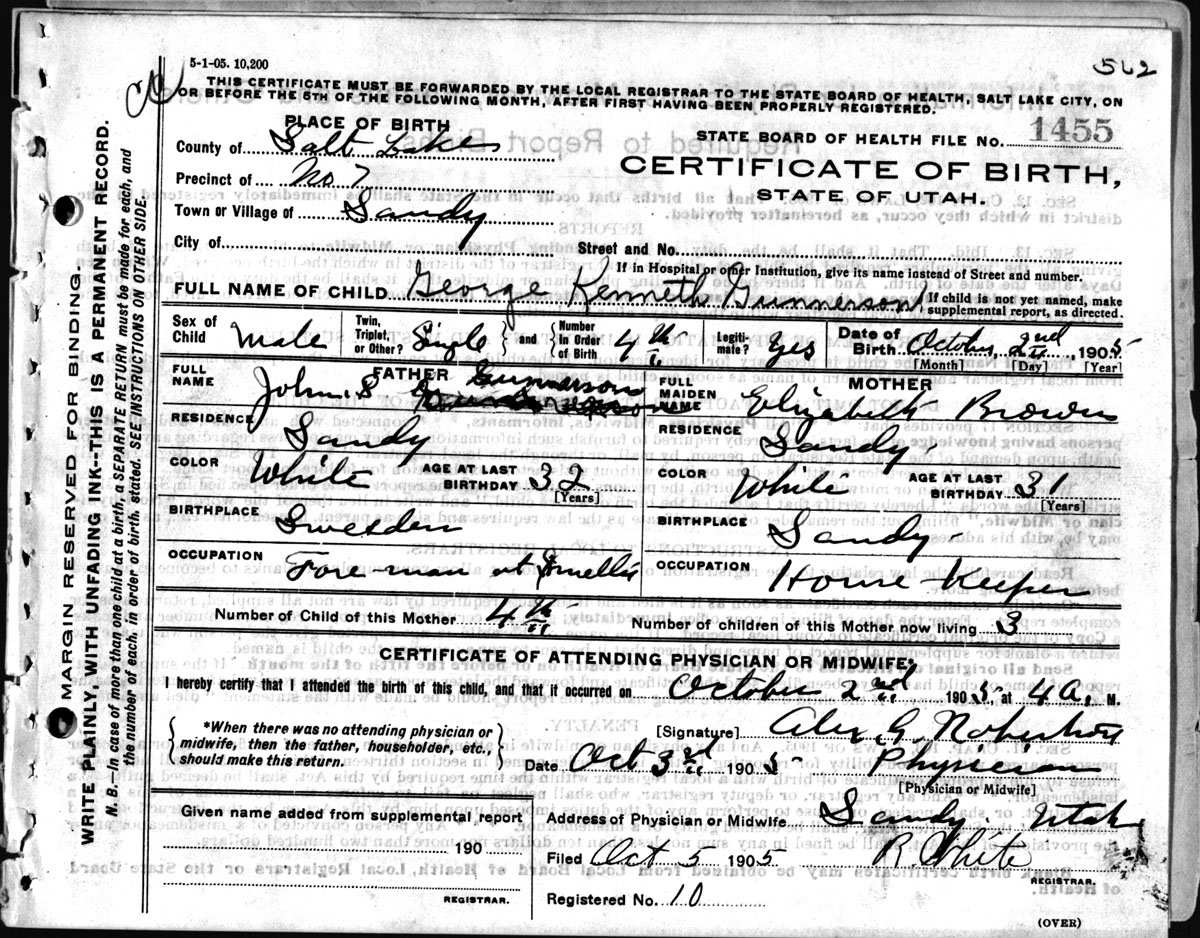 5-1-05. 10,200
562
THIS CERTIFICATE MUST BE FORWARDED BY THE LOCAL REGISTRAR TO THE STATE BOARD OF HEALTH, SALT LAKE CITY, ON
OR BEFORE THE 5TH OF THE FOLLOWING MONTH, AFTER FIRST HAVING BEEN PROPERLY REGISTERED.
PLACE OF BIRTH
STATE BOARD OF HEALTH FILE NO. 1455
County of Salt Lake
CERTIFICATE OF BIRTH,
Precinct of No 7
STATE OF UTAH.
Town or Village of Sandy
City of Street and No.
If in Hospital or other Institution, give its name instead of Street and number.
FULL NAME OF CHILD George Kenneth Gunnerson If child is not yet named, make supplemental report, as directed.
Sex of Child Male Twin, Triplet, or Other? Single and Number in Order of Birth 4th Legiti-mate? Yes Date of Birth October 2nd, 1905
[Month] [Day] [Year]
FATHER MOTHER
FULL NAME John S Gunnerson FULL MAIDEN NAME Elizabeth Brown
RESIDENCE Sandy RESIDENCE Sandy
COLOR White AGE AT LAST BIRTHDAY 32 [Years] COLOR White AGE AT LAST BIRTHDAY 31 [Years]
BIRTHPLACE Sweden BIRTHPLACE Sandy
OCCUPATION Foreman at OCCUPATION House Keeper
Number of Child of this Mother 4th Number of children of this Mother now living 3
CERTIFICATE OF ATTENDING PHYSICIAN OR MIDWIFE*
I hereby certify that I attended the birth of this child, and that it occurred on October 2nd 1905, at 4 A. M.
*When there was no attending physician or midwife, then the father, householder, etc., should make this return.
[Signature] Alex. G. Robertson
Date Oct 3rd 1905 Physician
[Physician or Midwife]
Given name added from supplemental report
Address of Physician or Midwife Sandy Utah
190
Filed Oct 5 1905 R. White
REGISTRAR.
REGISTRAR.
Registered No. 10
(OVER)
MARGIN RESERVED FOR BINDING.
WRITE PLAINLY, WITH UNFADING INK--THIS IS A PERMANENT RECORD.
N. B.--In case of more than one child at a birth, a SEPARATE RETURN must be made for each, and
the number of each, in order of birth, stated. SEE INSTRUCTIONS ON OTHER SIDE.